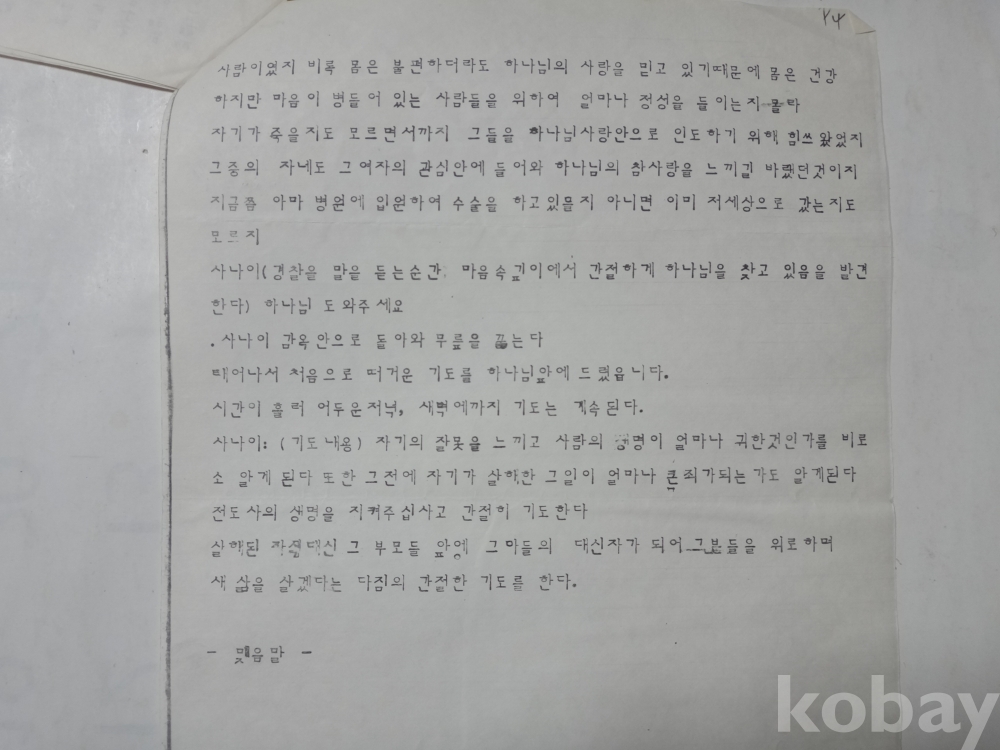 14
사람이었지 비록 몸은 불편하더라도 하나님의 사랑을 믿고 있기때문에 몸은 건강
하지만 마음이 병들어 있는 사람들을 위하여 얼마나 정성을 들이는지 몰라
자기가 죽을지도 모르면서까지 그들을 하나님사랑안으로 인도하기 위해 힘쓰왔었지
그중의 자네도 그여자의 관심안에 들어와 하나님의 참사랑을 느끼길 바랬던것이지
지금쯤 아마 병원에 입원하여 수술을 하고있을지 아니면 이미 저세상으로 갔는지도
모르지
사나이(경찰을 말을 듣는순간 마음속깊이에서 간절하게 하나님을 찾고 있음을 발견
한다) 하나님 도와주세요
.사나이 감옥안으로 돌아와 무릎을 꿇는다
태어나서 처음으로 뜨거운 기도를 하나님앞에 드렸읍니다.
시간이 흘러 어두운저녁, 새벽에까지 기도는 계속된다.
사나이: (기도내용) 자기의 잘못을 느끼고 사람의 생명이 얼마나 귀한것인가를 비로
소 알게 된다 또한 그전에 자기가 살해한 그일이 얼마나 큰죄가되는가도 알게된다
전도사의 생명을 지켜주십사고 간절히 기도한다
살해된 그 부모들 앞에 그아들의 대신자가 되어 그분들을 위로하며
새 삶을 살겠다는 다짐의 간절한 기도를 한다.
- 맺음말 -
kobay